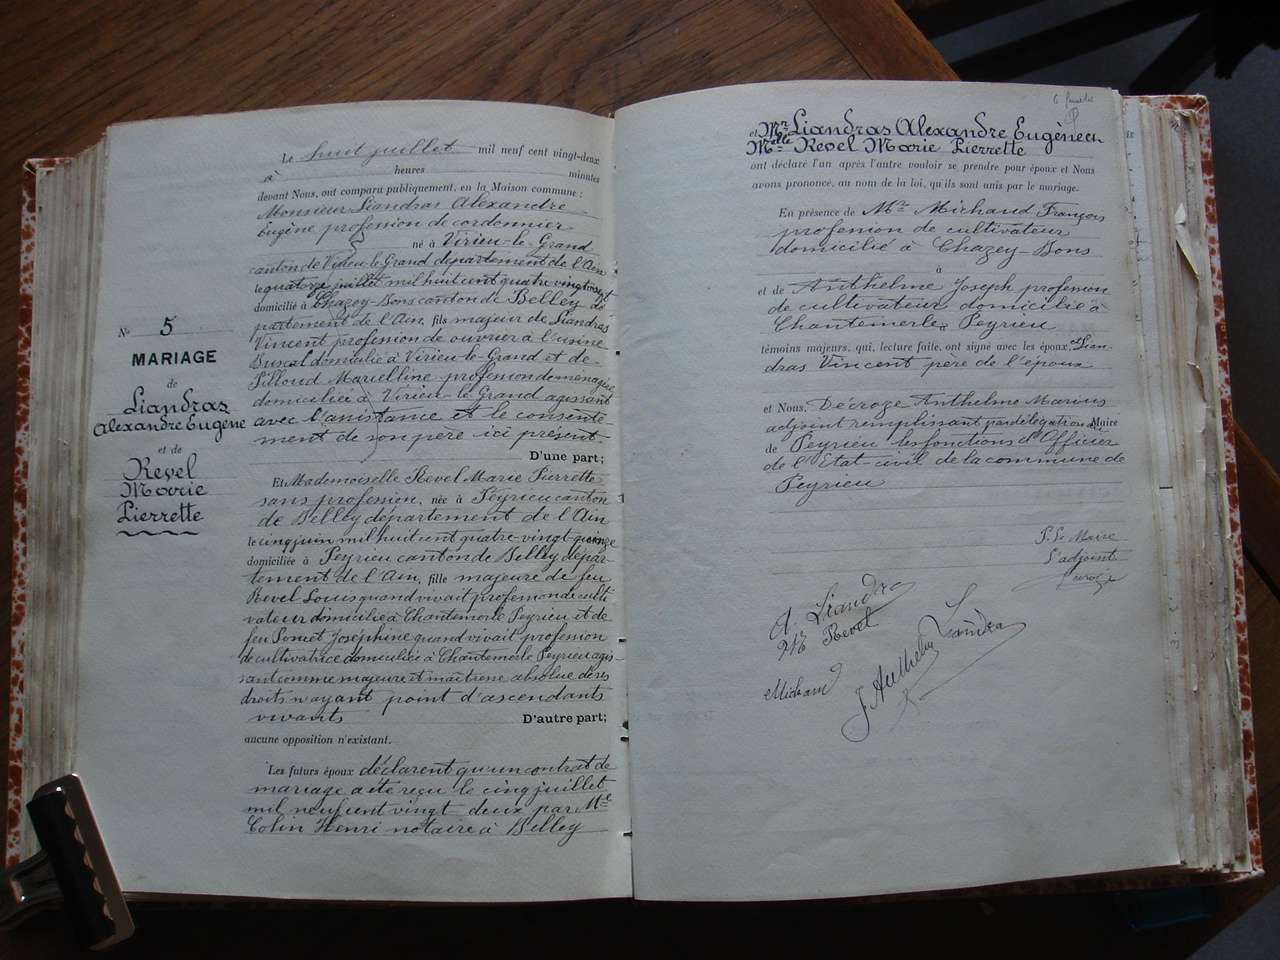 N° 5
MARIAGE
de
Liandras
Alexandre Eugène
et de
Revel
Marie
Pierrette
Le huit juillet mil neuf cent vingt-deux
à heures minutes
devant Nous, ont comparu publiquement, en la Maison commune :
Monsieur Liandras Alexandre
Eugène profession de cordonnier
né à Virieu-le-Grand
canton de Virieu-le-Grand département de l'Ain
le quatorze juillet mil huit cent quatre vingt
domicilié à Chazey-Bons canton de Belley dé-
partement de l'Ain, fils majeur de Liandras
Vincent profession de ouvrier à l'usine
domicilié à Virieu-le-Grand et de
Marcelline profession de ménagère
domiciliée à Virieu-le-Grand agissant
avec l'assistance et le consente-
ment de son père ici présent
D'une part;
Et Mademoiselle Revel Marie Pierrette
sans profession, née à Peyrieu canton
de Belley département de l'Ain
le cinq juin mil huit cent quatre-vingt-quinze
domiciliée à Peyrieu canton de Belley dépar-
tement de l'Ain, fille majeure de feu
Revel Louis quand vivait profession de culti-
vateur domicilié à Chantemerle Peyrieu et de
feu Poncet Joséphine quand vivait profession
de cultivatrice domiciliée à Chantemerle Peyrieu agis-
sant comme majeure et maîtresse absolue de ses
droits n'ayant point d'ascendants
vivants D'autre part;
aucune opposition n'existant.
Les futurs époux déclarent qu'un contrat de
mariage a été reçu le cinq juillet
mil neuf cent vingt deux par Me
Colin Henri notaire à Belley
et Mr Liandras Alexandre Eugène et
Melle Revel Marie Pierrette
ont déclaré l'un après l'autre vouloir se prendre pour époux et Nous
avons prononcé, au nom de la loi, qu'ils sont unis par le mariage.
En présence de Mr Michaud François
profession de cultivateur
domicilié à Chazey-Bons
à
et de Anthelme Joseph profession
de cultivateur domicilié à
Chantemerle Peyrieu
témoins majeurs, qui, lecture faite, ont signé avec les époux et Lian-
dras Vincent père de l'époux
et Nous, Décroze Anthelme Marius
adjoint remplissant par délégation du Maire
de Peyrieu les fonctions d'Officier
de l'Etat-civil de la commune de
Peyrieu
P. Le Maire
L'adjoint
A. Liandras
Revel
Liandra
Michaud
J Anthelme